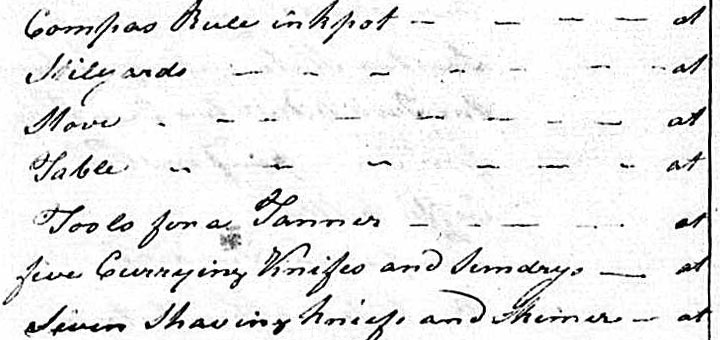 Compas Rule inkpot — — — — — at
Stilyards — — — — — — — at
Stove - — — — — — — at
Table — — — — — - at
Tools for a Tanner — — — — at
five Currying Knifes and Sundrys — at
Seven Shaving Knifs and Skimer — at